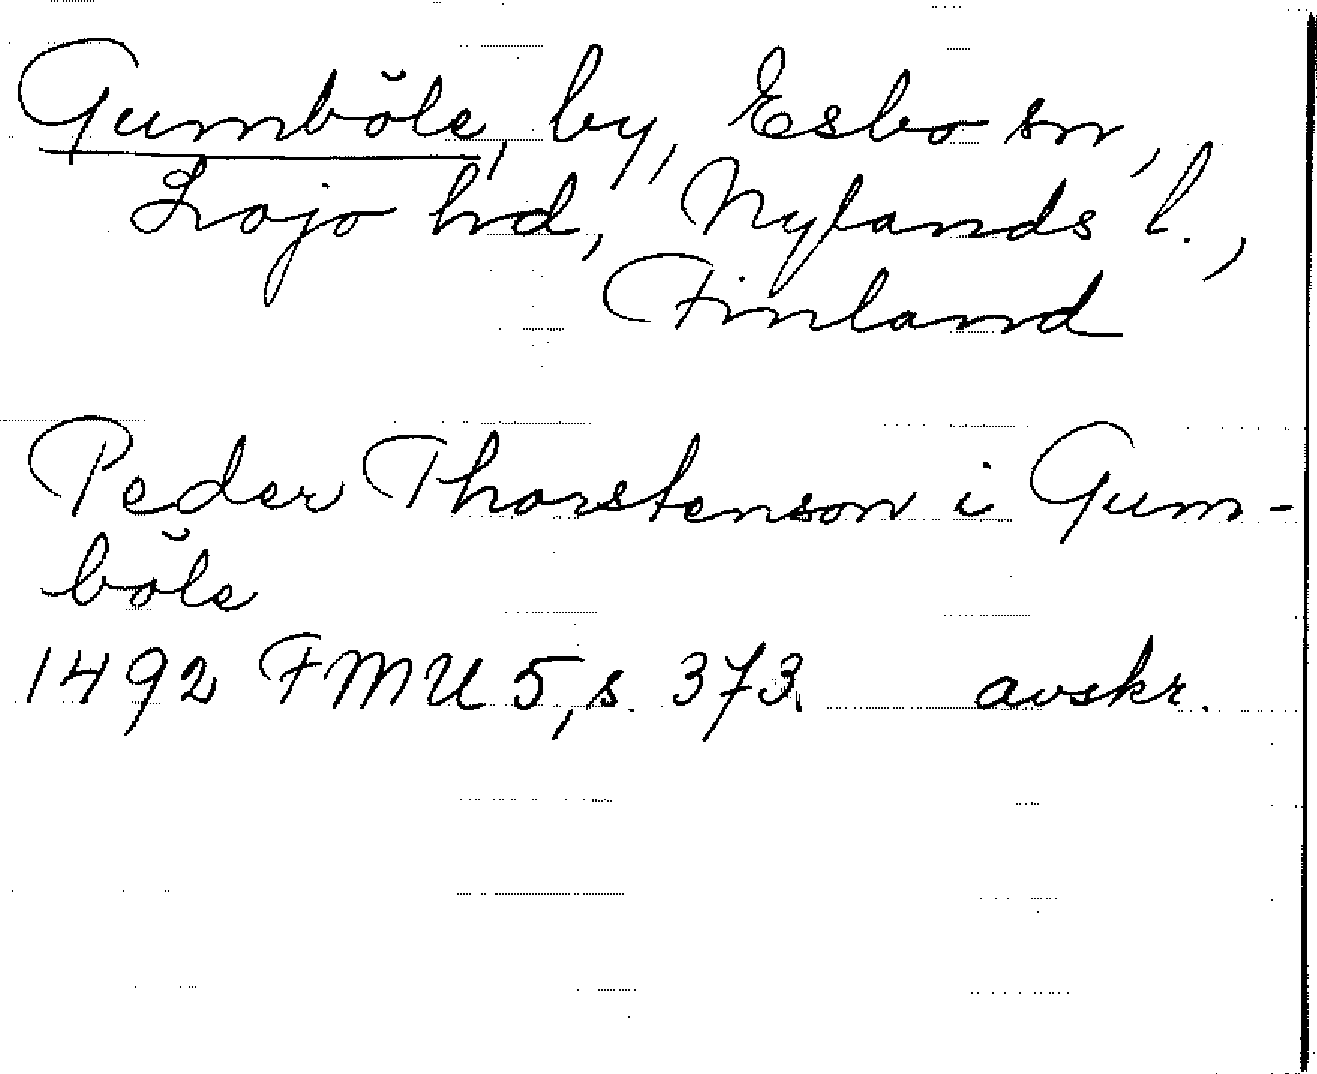 Gumböle, by, Esbo sn,
Lojo hd, Nylands l.,
Finland
Peder Thorstenson i Gum-
böle
1492 FMU 5, s. 373. avskr.